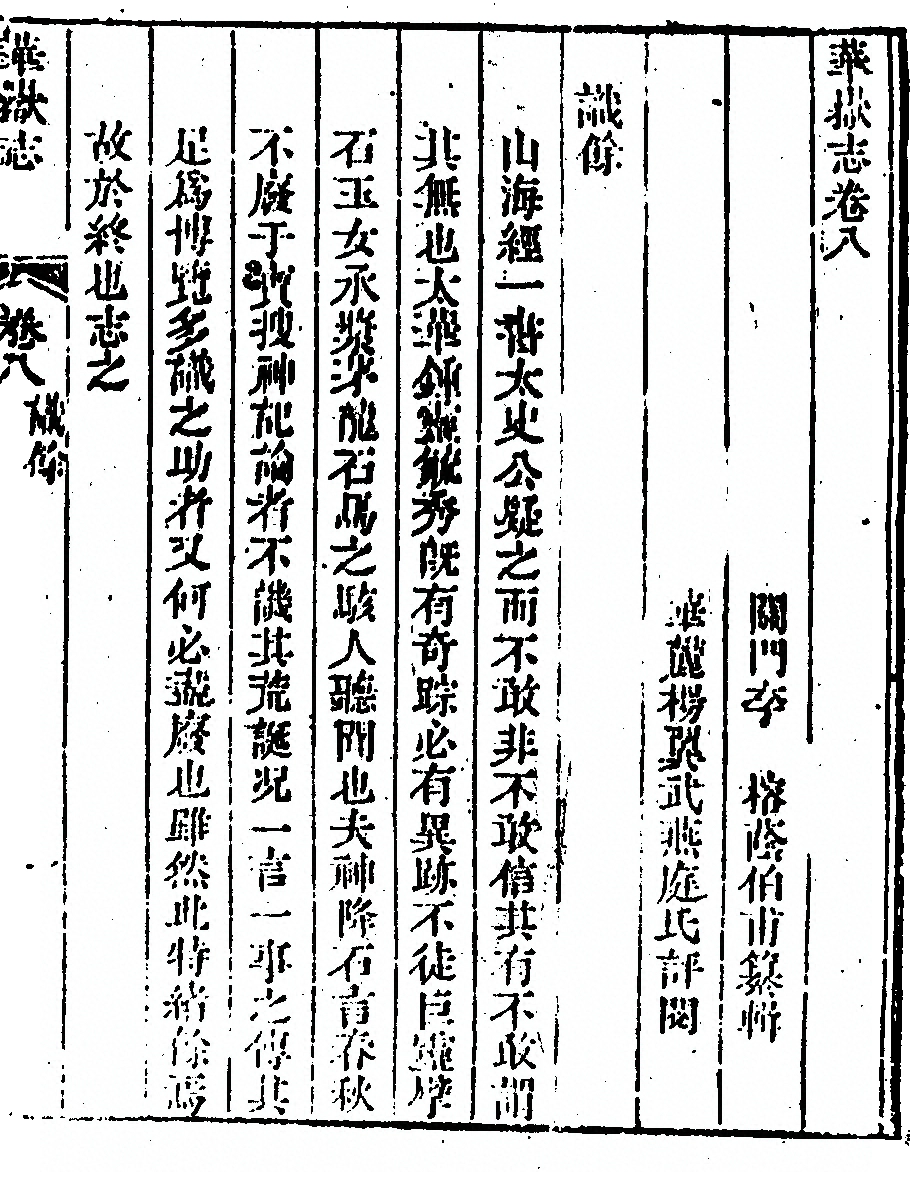 華嶽志卷八
關門李 榕蔭伯甫纂輯
華麓楊翼武燕庭氏評閱
識餘
山海經一書太史公疑之而不敢非不敢信其有不敢謂
其無也太華鍾靈毓秀既有奇踪必有異跡不徒巨靈擘
石玉女承漿湫龍石馬之駭人聽聞也夫神降石言春秋
不廢干寶搜神記論者不譏其荒誕况一言一事之傳其
足爲博覽多識之助者又何必盡廢也雖然此特緒餘焉
故於終也志之
華嶽志 卷八 識餘